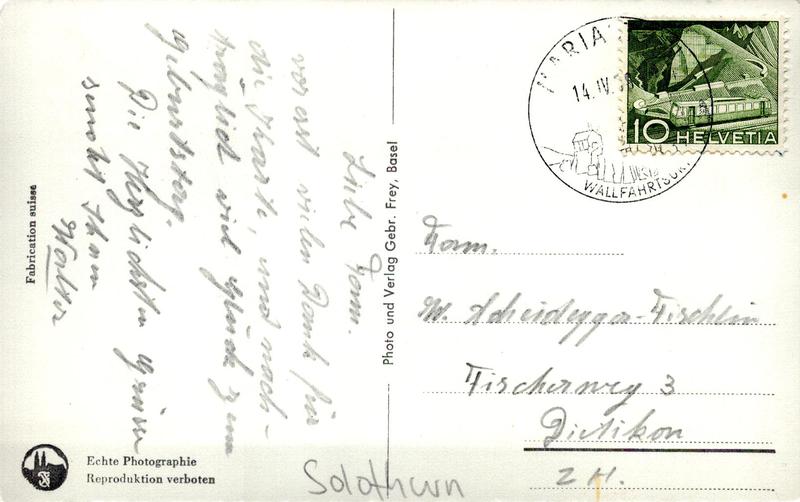 Liebe Fam.
vor ast vielen Dank für
die Karte, und nach-
träglich viel glück zum
geburtstag.
Die Herzlichsten Grüsse
Walter
Fabrication suisse
Echte Photographie
Reproduktion verboten
Photo und Verlag Gebr. Frey, Basel
MARIA
14.IV.
WALLFAHRTSORT
10 HELVETIA
Fam.
W. Scheidegger-Fischlin
Fischerweg 3
Dietikon
ZH.
Solothurn